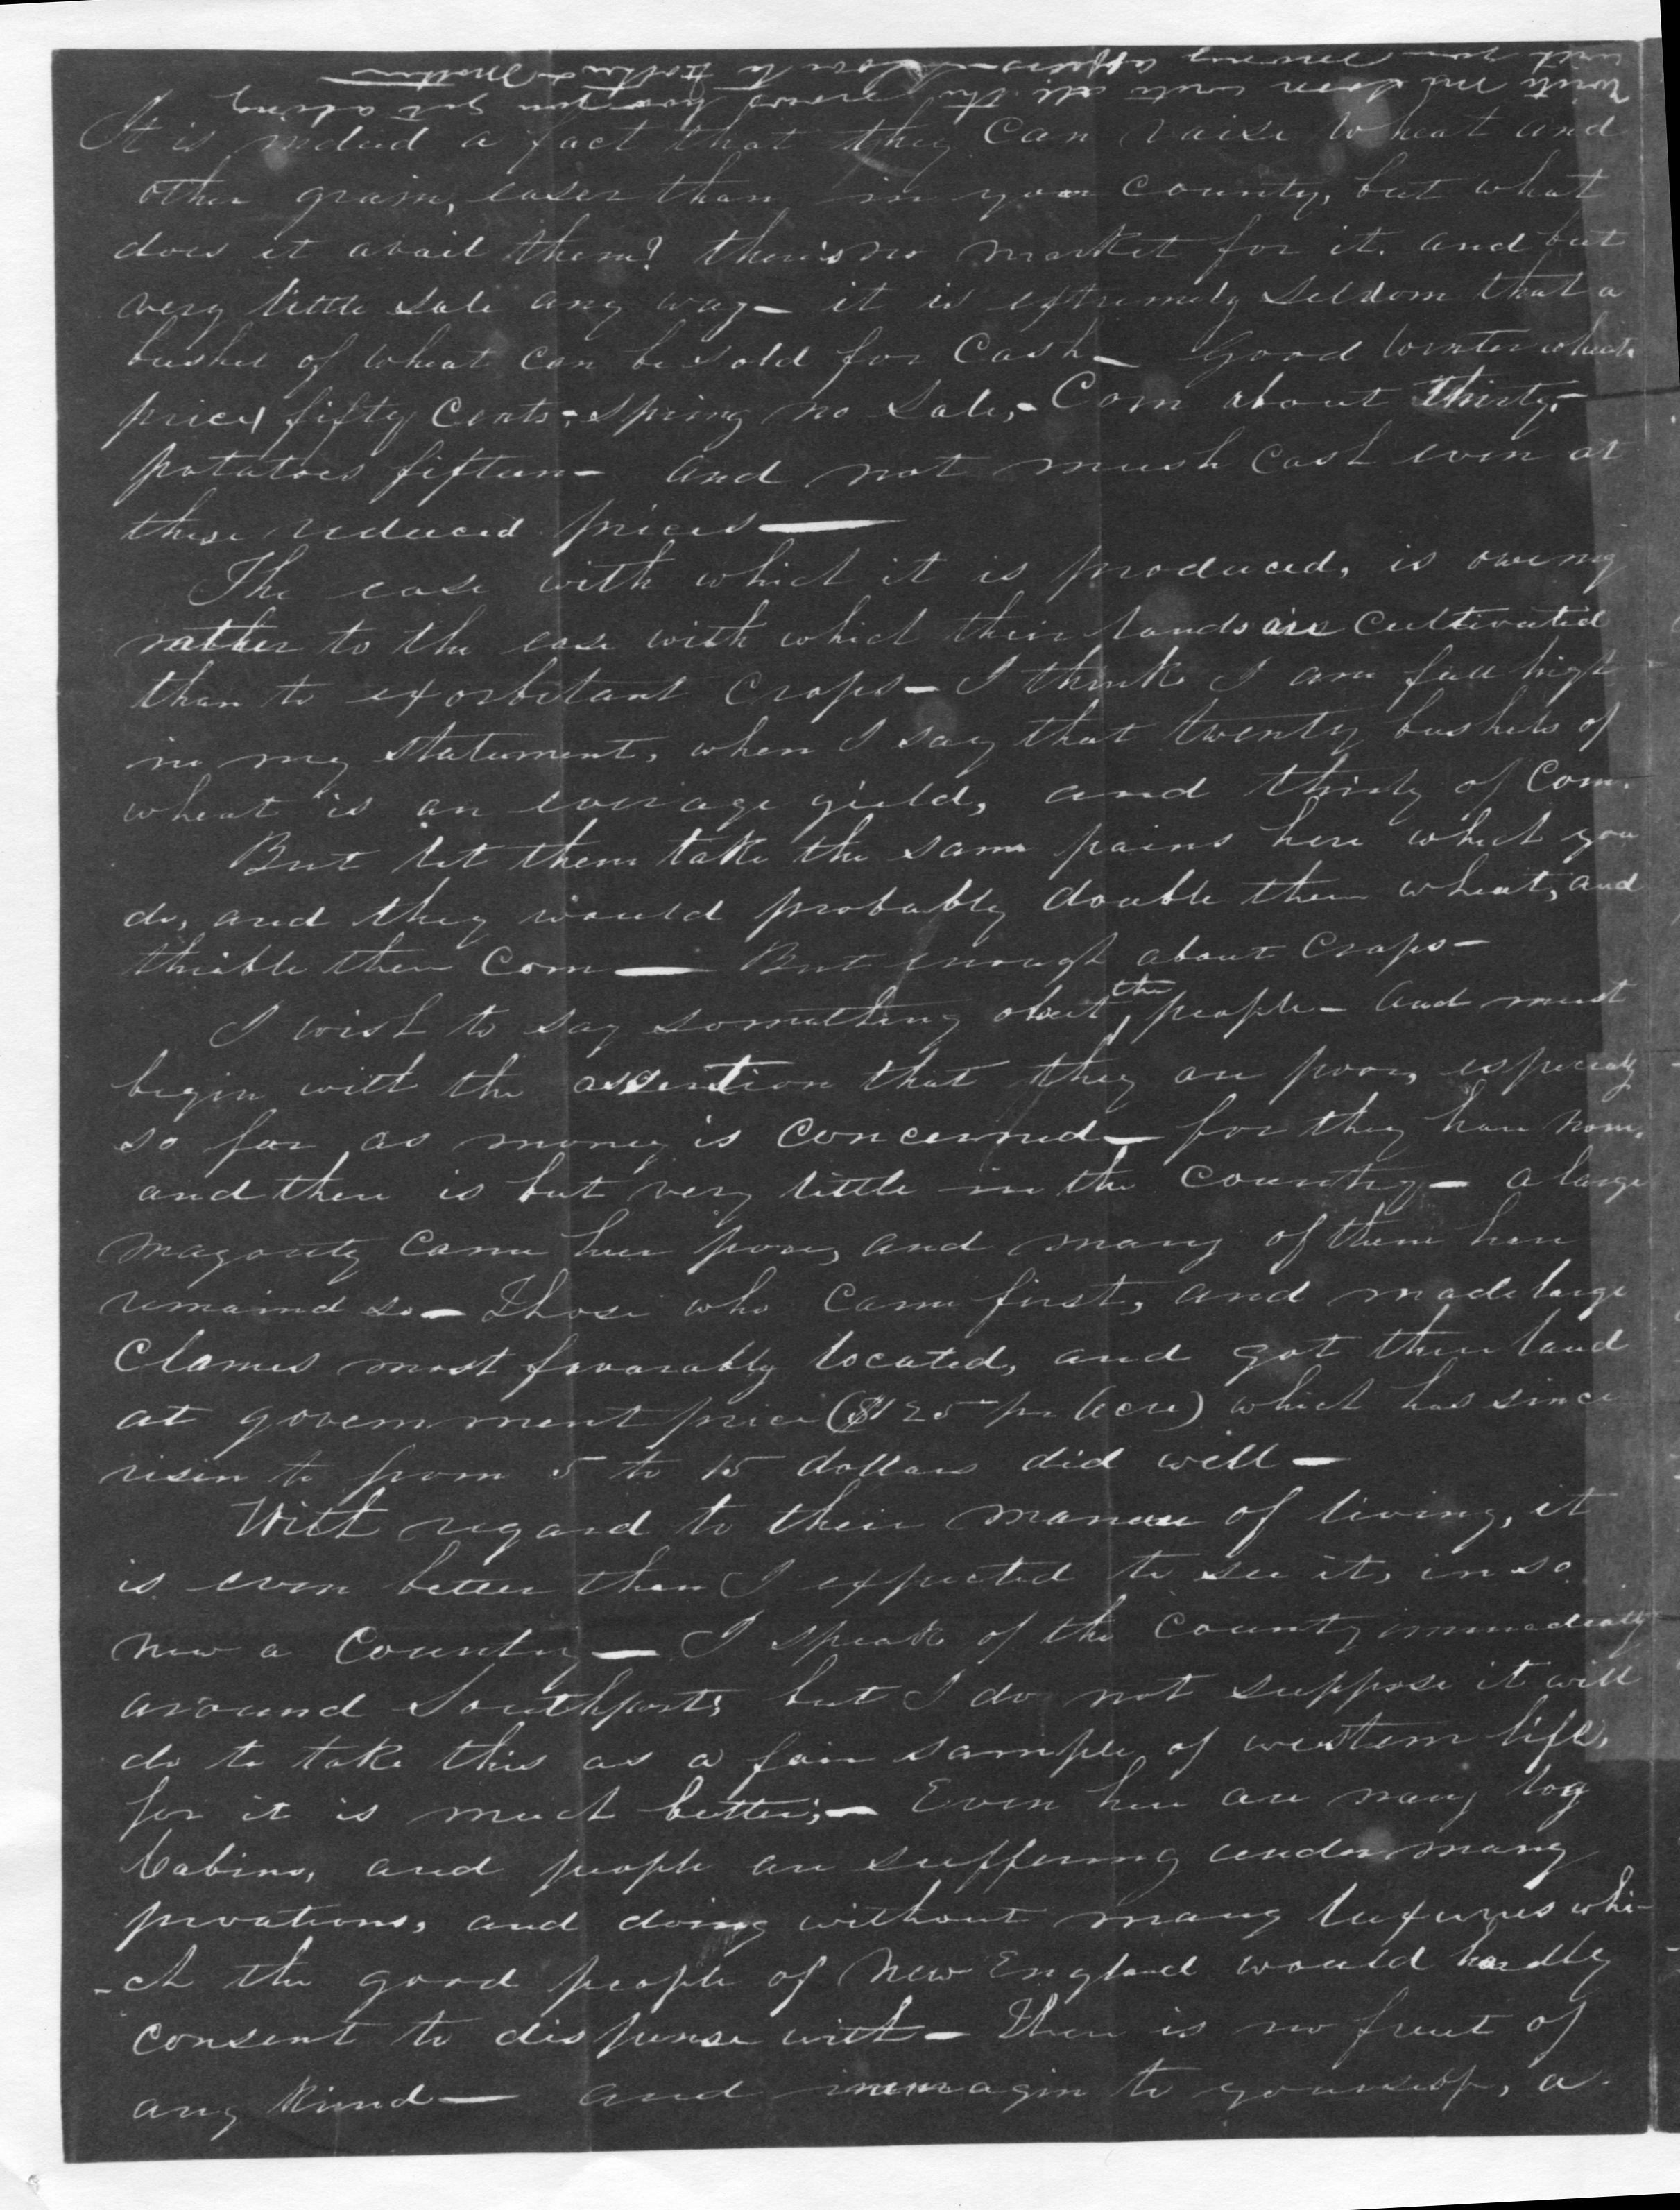 Write me soon write all the news how you get along
with your money affairs love to Father & Mother
It is indeed a fact that they can raise wheat and
other grain, easer than in your county, but what
does it avail them? there is no market for it. and but
very little sale any way - it is extremely seldom that a
bushel of wheat can be sold for Cash - Good Winter wheat
price fifty Cents - spring no sale, - Corn about thirty, -
potatoes fifteen - and not much cash even at
these reduced prices —
The ease with which it is produced, is oweing
rather to the ease with which their lands are Cultivated
than to exorbitant Crops - I think I am full high
in my statement, when I say that twenty bushels of
wheat is an everage yield, and thirty of Corn.
But let them take the same pains here which you
do, and they would probably double their wheat, and
thribble their Corn — But enough about Crops -
I wish to say something about the people - and must
begin with the assertion that they are poor, especialy
so far as money is Concerned - for they have none,
and there is but very little in the Country - a large
magority came here poor, and many of them have
remaind so - Those who came first, and made large
Clames most favorably located, and got their land
at government price ($1 25 pr Acre) which has since
risen to from 5 to 15 dollars did well -
With regard to their manner of living, it
is even better than I expected to see it, in so
new a Country - I speak of the County immediatly
around Southport; but I do not suppose it will
do to take this as a fair sample of western life,
for it is much better; - Even here are many log
Cabins, and people are suffering under many
privations, and doing without many luxuries whi-
-ch the good people of New England would hardly
consent to dispense with - There is no fruit of
any kind - and immagin to yourself, a